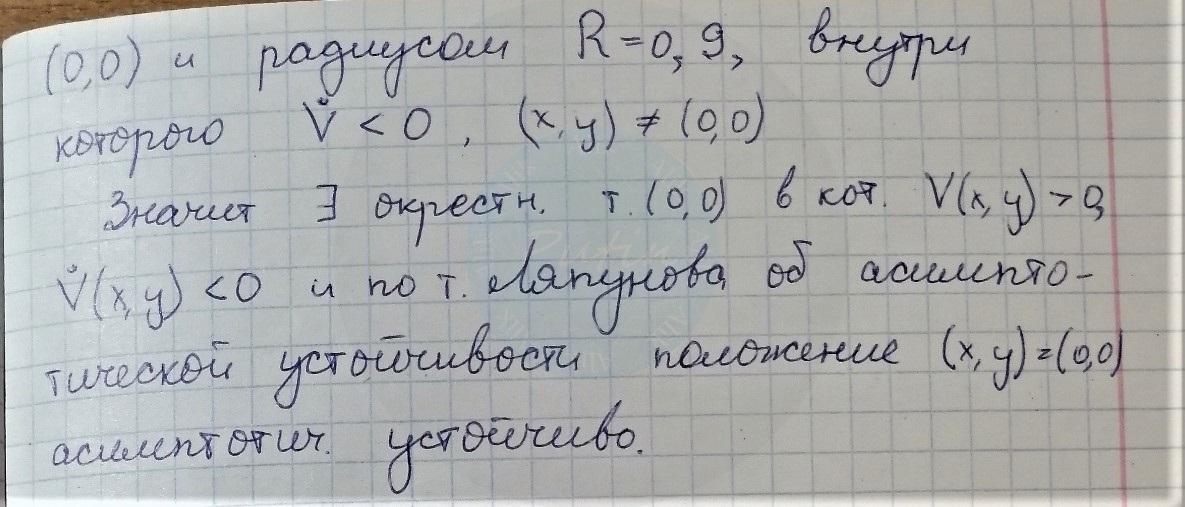 (0,0) и радиусом R = 0,9, внутри
которого V̇ < 0, (x, y) ≠ (0,0)
Значит ∃ окрестн. т. (0,0) в кот. V(x, y) > 0,
V̇(x, y) < 0 и по т. Ляпунова об асимпто-
тической устойчивости положение (x, y) = (0,0)
асимптотич. устойчиво.